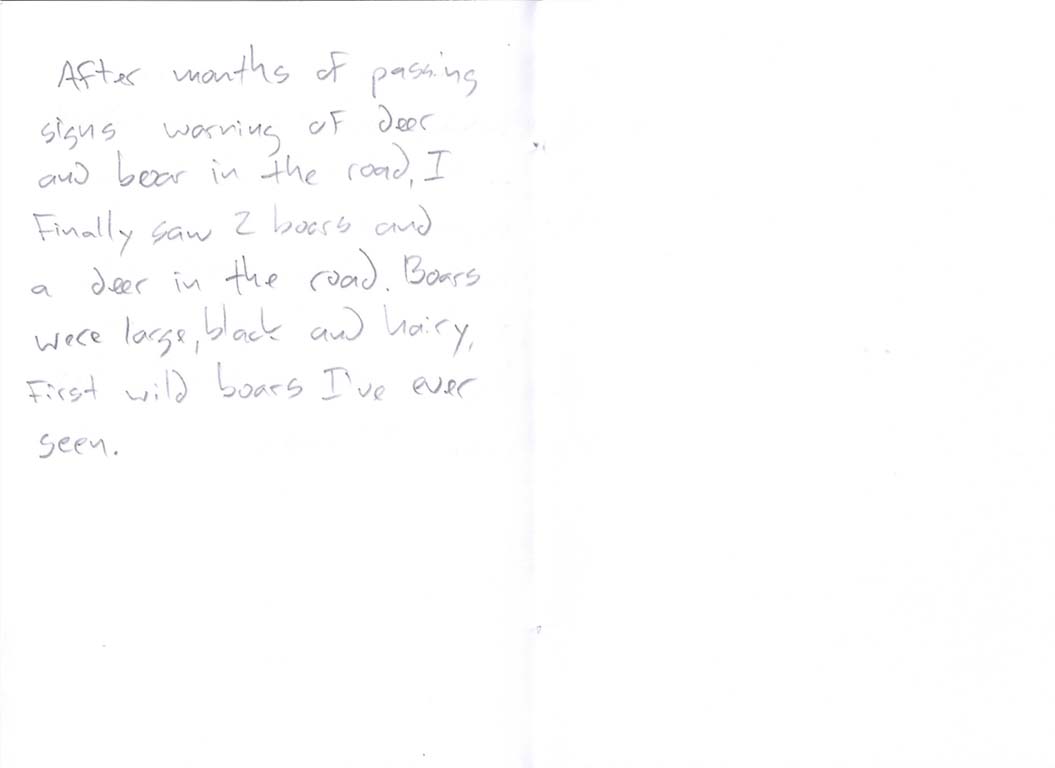 After months of passing
signs warning of deer
and boar in the road, I
Finally saw 2 boars and
a deer in the road. Boars
were large, black and hairy,
First wild boars I've ever
seen.